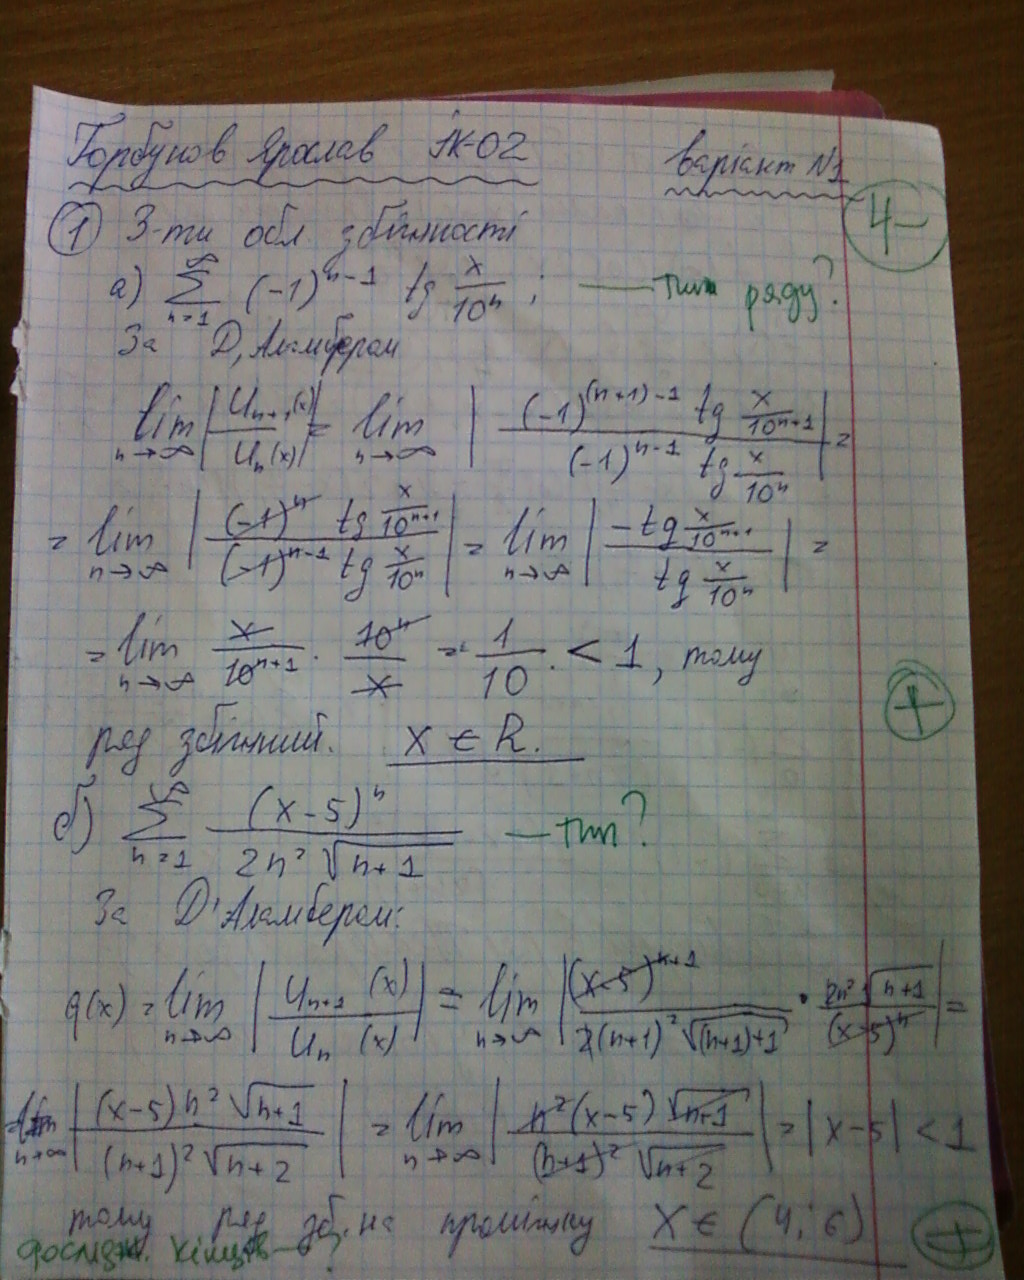 Горбунов Ярослав ІК-02
Варіант №1
4-
① З-ти обл. збіжності
а) ∑_{n=1}^{∞} (-1)^{n-1} tg x/10^n ; — тип ряду?
За Д'Аламбером
lim_{n→∞} |U_{n+1}(x)/U_n(x)| = lim_{n→∞} |(-1)^{(n+1)-1} tg x/10^{n+1} / (-1)^{n-1} tg x/10^n| =
= lim_{n→∞} |(-1)^n tg x/10^{n+1} / (-1)^{n-1} tg x/10^n| = lim_{n→∞} |-tg x/10^{n+1} / tg x/10^n| =
= lim_{n→∞} x/10^{n+1} · 10^n/x = 1/10 < 1, тому
+
ряд збіжний. x ∈ R.
б) ∑_{n=1}^{∞} (x-5)^n / 2n² √(n+1) — тип?
За Д'Аламбером:
q(x) = lim_{n→∞} |U_{n+1}(x)/U_n(x)| = lim_{n→∞} |(x-5)^{n+1} / 2(n+1)² √((n+1)+1) · 2n² √(n+1) / (x-5)^n| =
= lim_{n→∞} |(x-5) n² √(n+1) / (n+1)² √(n+2)| = lim_{n→∞} |n² (x-5) √(n+1) / (n+1)² √(n+2)| = |x-5| < 1
тому ряд зб. на проміжку x ∈ (4; 6)
+
дослідж. кінців — ?